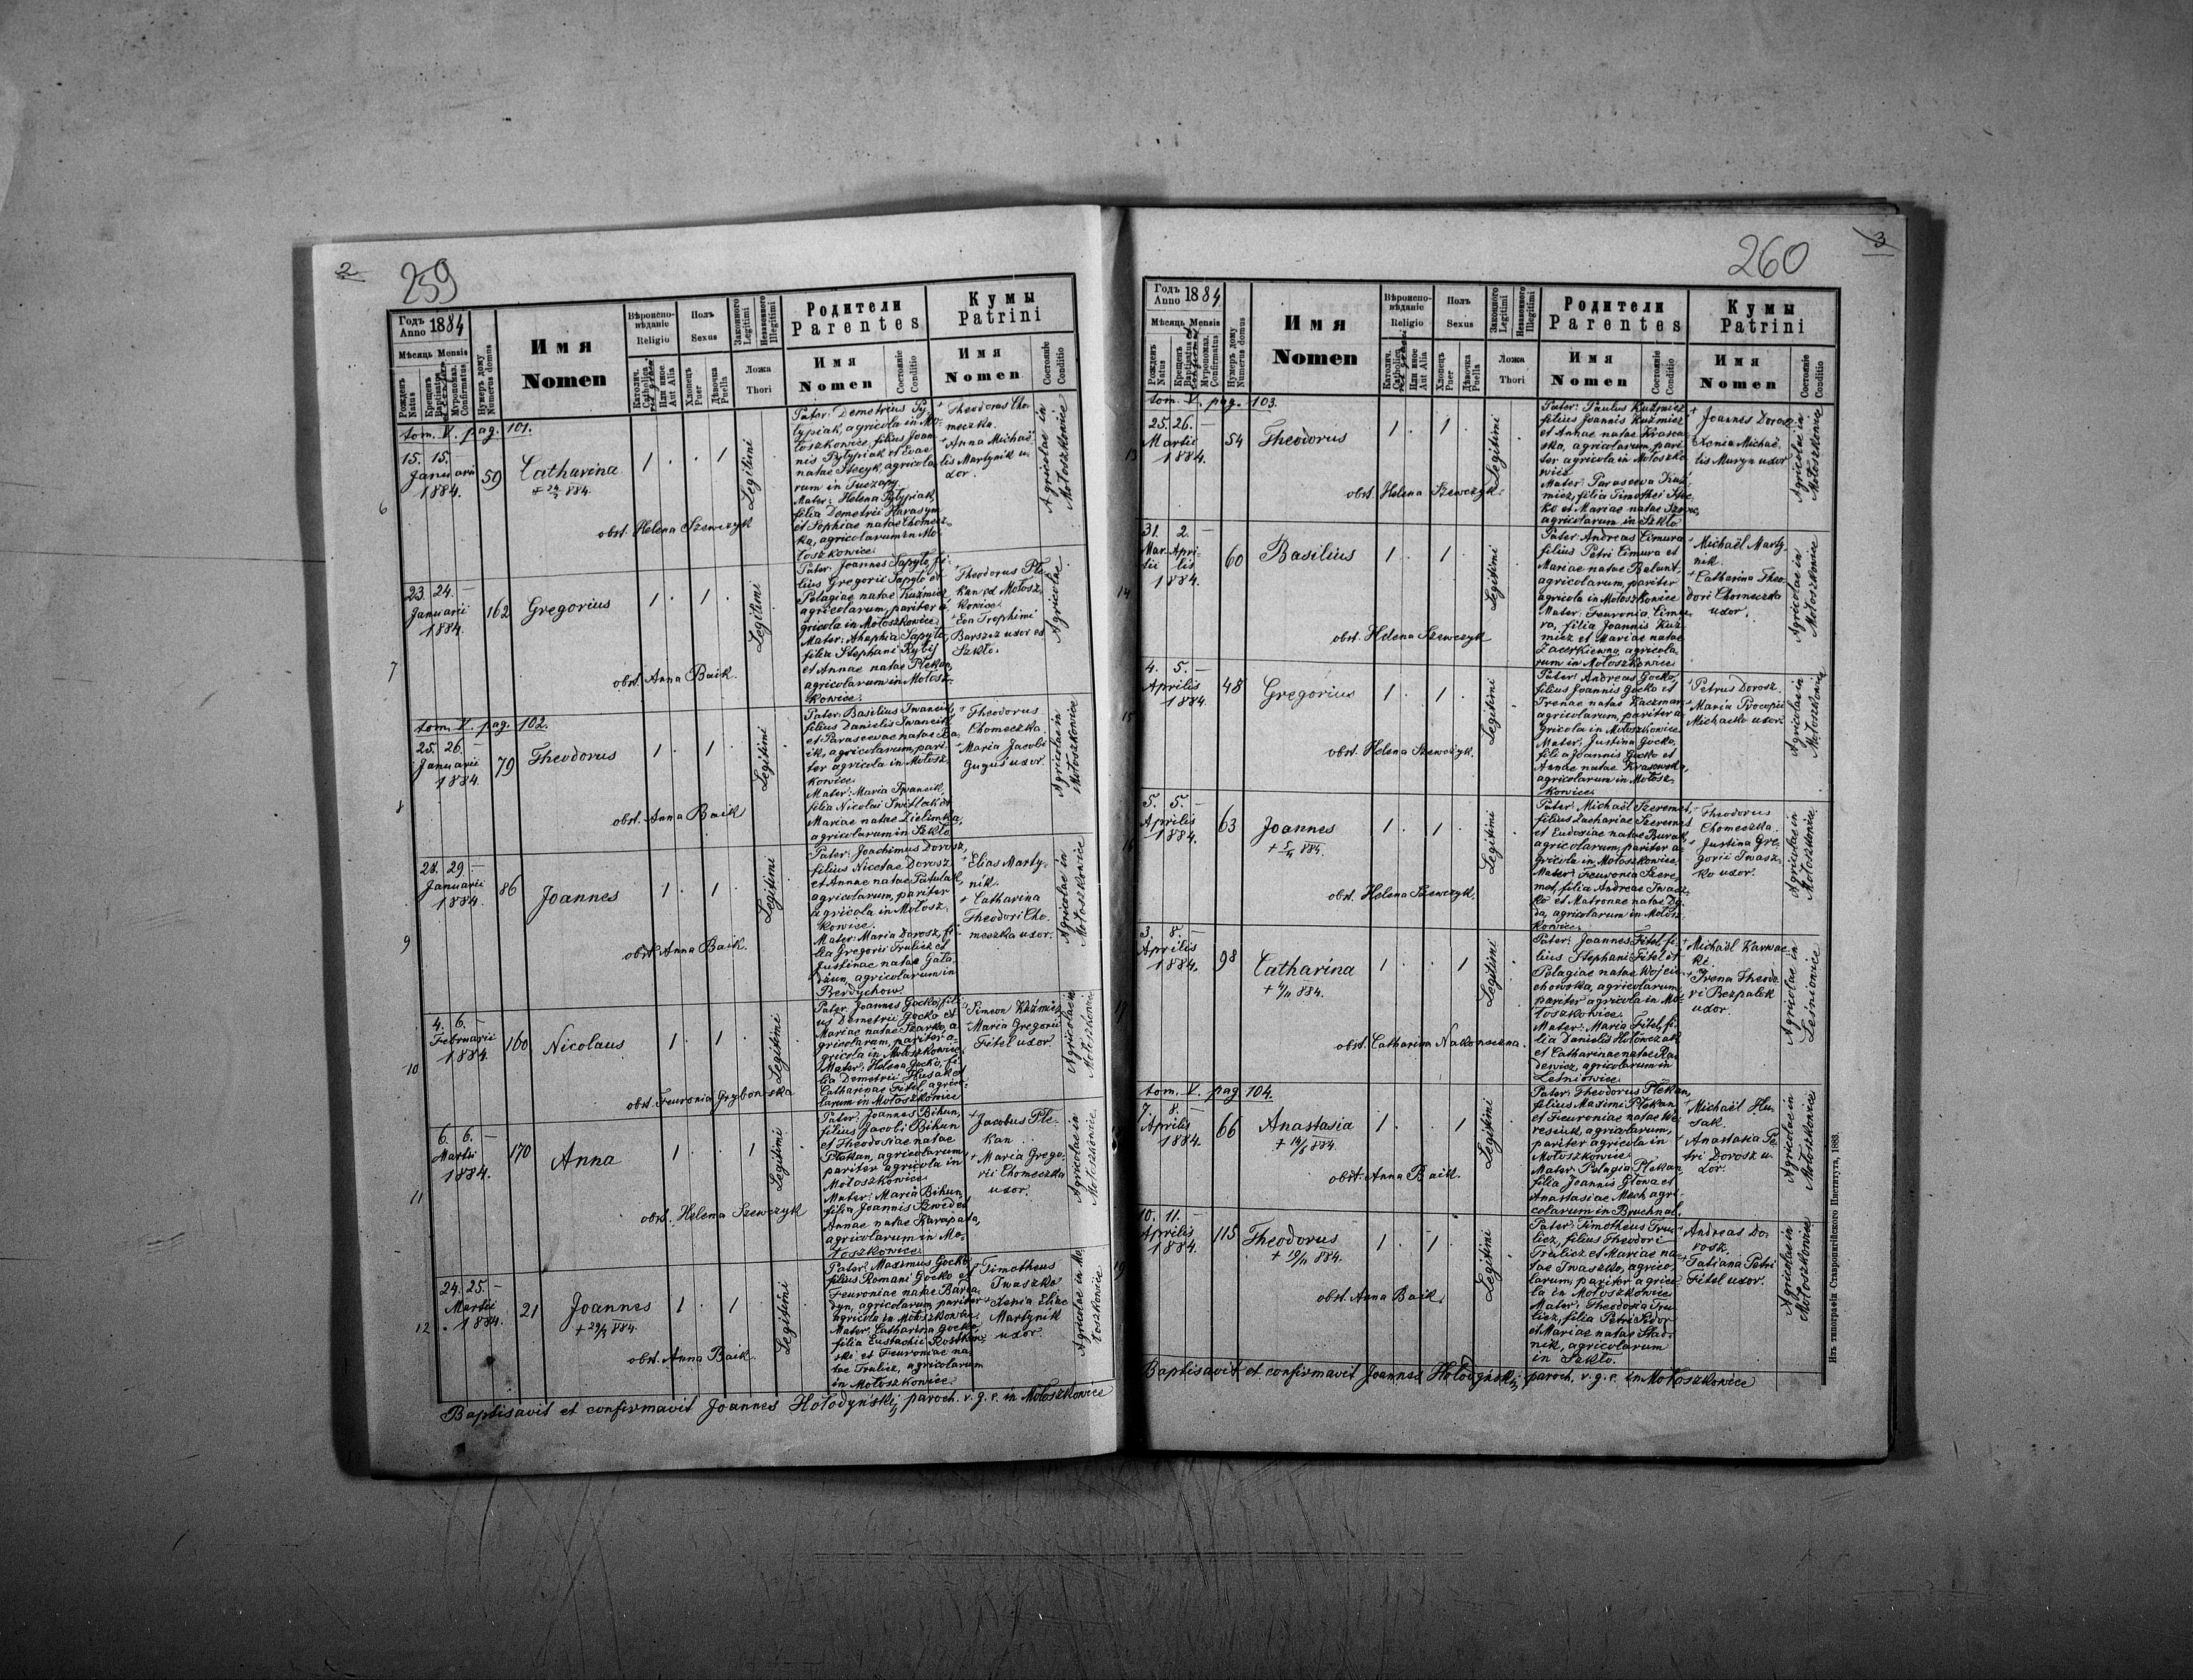 2
259
Годъ Anno 1884
Мѣсяцъ Mensis
Рожденъ Natus
Крещенъ Baptisatus
Мѵропомаз. Confirmatus
Нумеръ дому Numerus domus
Имя
Nomen
Вѣроиспо-
вѣданіе
Religio
Католич. Catholica
Или иное Aut Alia
Полъ
Sexus
Хлопецъ Puer
Дѣвочка Puella
Законного Legitimi
Незаконного Illegitimi
Ложа
Thori
Родители
Parentes
Имя
Nomen
Состояніе Conditio
Кумы
Patrini
Имя
Nomen
Состояніе Conditio
tom. V. pag. 101.
6
15. 15. —
Januarii
1884.
59
Catharina
1 . . 1
Legitimi
obst. Helena Szewczyk
Pater: Demetrius Py-
typiak, agricola in Mo-
łoszkowice, filius Joan-
nis Pytypiak et Evae
natae Stecyk, agricola-
rum in Tuczapy.
Mater: Helena Pytypiak,
filia Demetrii Harasym
et Sophiae natae Chomecz-
ka, agricolarum in Mo-
łoszkowice.
Theodorus Cho-
meczka.
Anna Michaë-
lis Martynik u-
xor.
Agricolae in
Mołoszkowice
7
23. 24. —
Januarii
1884.
162
Gregorius
1 . 1 .
Legitimi
obst. Anna Baik.
Pater: Joannes Sapyło, fi-
lius Gregorii Sapyło et
Pelagiae natae Kuźmicz,
agricolarum, pariter a-
gricola in Mołoszkowice.
Mater: Ahaphia Sapyło,
filia Stephani Rybij
et Annae natae Plekan,
agricolarum in Mołosz-
kowice.
Theodorus Ple-
kan ex Mołosz-
kowice.
Eva Trophimi
Barszcz uxor ex
Szkło.
Agricolae
tom. V. pag. 102.
8
25. 26. —
Januarii
1884.
79
Theodorus
1 . 1 .
Legitimi
obst. Anna Baik
Pater: Basilius Iwancik,
filius Danielis Iwancik
et Parascevae natae Ba-
ik, agricolarum, pari-
ter agricola in Mołosz-
kowice.
Mater: Maria Iwancik,
filia Nicolai Switlak et
Mariae natae Zielinska,
agricolarum in Szkło
Theodorus
Chomeczka.
Maria Jacobi
Guguś uxor.
Agricolae in
Mołoszkowice
9
28. 29. —
Januarii
1884.
86
Joannes
1 . 1 .
Legitimi
obst. Anna Baik.
Pater: Joachimus Dorosz,
filius Nicetae Dorosz
et Annae natae Patulak,
agricolarum, pariter
agricola in Mołosz-
kowice.
Mater: Maria Dorosz, fi-
lia Gregorii Trulicz et
Justinae natae Gała-
dzun, agricolarum in
Berdychow.
Elias Marty-
nik.
Catharina
Theodori Cho-
meczka uxor.
Agricolae in
Mołoszkowice
10
4. 6. —
Februarii
1884.
160
Nicolaus
1 . 1 .
Legitimi
obst. Feuronia Grybowska
Pater: Joannes Gocko, fili-
us Demetrii Gocko et
Mariae natae Szarko, a-
gricolarum, pariter a-
gricola in Mołoszkowice
Mater: Helena Gocko, fi-
lia Demetrii Husak et
Catharinae Fitel, agrico-
larum in Mołoszkowice
Simeon Kuźmicz
Maria Gregorii
Fitel uxor
Agricolae in
Mołoszkowice
11
6. 6. —
Martii
1884.
170
Anna
1 . . 1
Legitimi
obst. Helena Szewczyk
Pater: Joannes Bihun,
filius Jacobi Bihun
et Theodosiae natae
Plekan, agricolarum
pariter agricola in
Mołoszkowice.
Mater: Maria Bihun,
filia Joannis Szwed et
Annae natae Karapata,
agricolarum in Mo-
łoszkowice.
Jacobus Ple-
kan.
Maria Grego-
rii Chomeczka
uxor.
Agricolae in
Mołoszkowice
12
24. 25. —
Martii
1884.
21
Joannes
1 . 1 .
Legitimi
obst. Anna Baik.
Pater: Maximus Gocko
filius Romani Gocko et
Feuroniae natae
agricolarum, pariter
agricola in Mołoszkowice.
Mater: Catharina Gocko
filia Eustachii
et Feuroniae na-
tae Trulicz, agricolarum
in Mołoszkowice.
Timotheus
Iwaszko
Xenia Eliae
Martynik
uxor.
Agricolae in Mo-
łoszkowice
Baptisavit et confirmavit Joannes Hołodyńskij, paroch. r. g. c. in Mołoszkowice
260
3
Годъ Anno 1884
Мѣсяцъ Mensis
Рожденъ Natus
Крещенъ Baptisatus
Мѵропомаз. Confirmatus
Нумеръ дому Numerus domus
Имя
Nomen
Вѣроиспо-
вѣданіе
Religio
Католич. Catholica
Или иное Aut Alia
Полъ
Sexus
Хлопецъ Puer
Дѣвочка Puella
Законного Legitimi
Незаконного Illegitimi
Ложа
Thori
Родители
Parentes
Имя
Nomen
Состояніе Conditio
Кумы
Patrini
Имя
Nomen
Состояніе Conditio
tom. V. pag. 103.
13
25. 26. —
Martii
1884.
54
Theodorus
1 . 1 .
Legitimi
obst. Helena Szewczyk.
Pater: Paulus Kuźmicz
filius Joannis Kuźmicz
et Annae natae Krasow-
ska, agricolarum, pari-
ter agricola in Mołoszko-
wice
Mater: Parasceva Kuź-
micz, filia Timothei
et Mariae natae
agricolarum in Szkło
Joannes Dorosz
Xenia Michaë-
lis Muryn uxor
Agricolae in
Mołoszkowice
14
31. 2. —
Mar- Apri-
tii lis
1884.
60
Basilius
1 . 1 .
Legitimi
obst. Helena Szewczyk
Pater: Andreas Cimura
filius Petri Cimura et
Mariae natae Balunt,
agricolarum, pariter
agricola in Mołoszkowice
Mater: Feuronia Cimu-
ra, filia Joannis Kuź-
micz et Mariae natae
Zacerkiewna, agricola-
rum in Mołoszkowice.
Michaël Marty-
nik.
Catharina Theo-
dori Chomeczka
uxor.
Agricolae in
Mołoszkowice
15
4. 5. —
Aprilis
1884.
48
Gregorius
1 . 1 .
Legitimi
obst. Helena Szewczyk.
Pater: Andreas Gocko,
filius Joannis Gocko et
Irenae natae Kaczmar,
agricolarum, pariter a-
gricola in Mołoszkowice.
Mater: Justina Gocko,
filia Joannis Gocko et
Annae natae Krasowska,
agricolarum in Mołosz-
kowice.
Petrus Dorosz.
Maria Procopii
Michaćko uxor.
Agricolae in
Mołoszkowice
16
5. 5. —
Aprilis
1884.
63
Joannes
1 . 1 .
Legitimi
obst. Helena Szewczyk.
Pater: Michaël Szeremet,
filius Zachariae Szeremet
et Eudosiae natae Burak,
agricolarum, pariter a-
gricola in Mołoszkowice.
Mater: Feuronia Szere-
met, filia Andreae Iwasz-
ko et Matronae natae Dy-
da, agricolarum in Mołosz-
kowice.
Theodorus
Chomeczka.
Justina Gre-
gorii Iwasz-
ko uxor.
Agricolae in
Mołoszkowice
17
3. 8. —
Aprilis
1884.
98
Catharina
1 . . 1
Legitimi
obst. Catharina Nakoneczna.
Pater: Joannes Fitel, fi-
lius Stephani Fitel et
Pelagiae natae Wojcie-
chowska, agricolarum,
pariter agricola in Mo-
łoszkowice.
Mater: Maria Fitel, fi-
lia Danielis Hołowczak
et Catharinae natae Ra-
dewicz, agricolarum in
Leśniowice.
Michaël Karwac-
ki.
Irena Theodo-
ri Bezpalok
uxor.
Agricolae in
Leśniowice
tom. V. pag. 104.
7. 8. —
Aprilis
1884.
66
Anastasia
+ 14/8 884.
1 . . 1
Legitimi
obst. Anna Baik.
Pater: Theodorus Plekan,
filius Maximi Plekan
et Feuroniae natae We-
resiuk, agricolarum,
pariter agricola in
Mołoszkowice.
Mater: Pelagia Plekan
filia Joannis Głowa et
Anastasiae Mech agri-
colarum in Bruchnal.
Michaël Hu-
sak.
Anastasia Pe-
tri Dorosz u-
xor.
Agricolae in
Mołoszkowice
19
10. 11. —
Aprilis
1884.
115
Theodorus
+ 19/11 884.
1 . 1 .
Legitimi
obst. Anna Baik.
Pater: Timotheus Tru-
licz, filius Theodori
Trulicz et Mariae na-
tae Iwaszko, agrico-
larum, pariter agrico-
la in Mołoszkowice
Mater: Theodosia Tru-
licz, filia Petri Sidor
et Mariae natae Stad-
nik, agricolarum
in Szkło.
Andreas Do-
rosz.
Tatiana Petri
Fitel uxor.
Agricolae in
Mołoszkowice
Baptisavit et confirmavit Joannes Hołodyńskij, paroch. r. g. c. in Mołoszkowice
Изъ типографіи Ставропигійского Института, 1883.